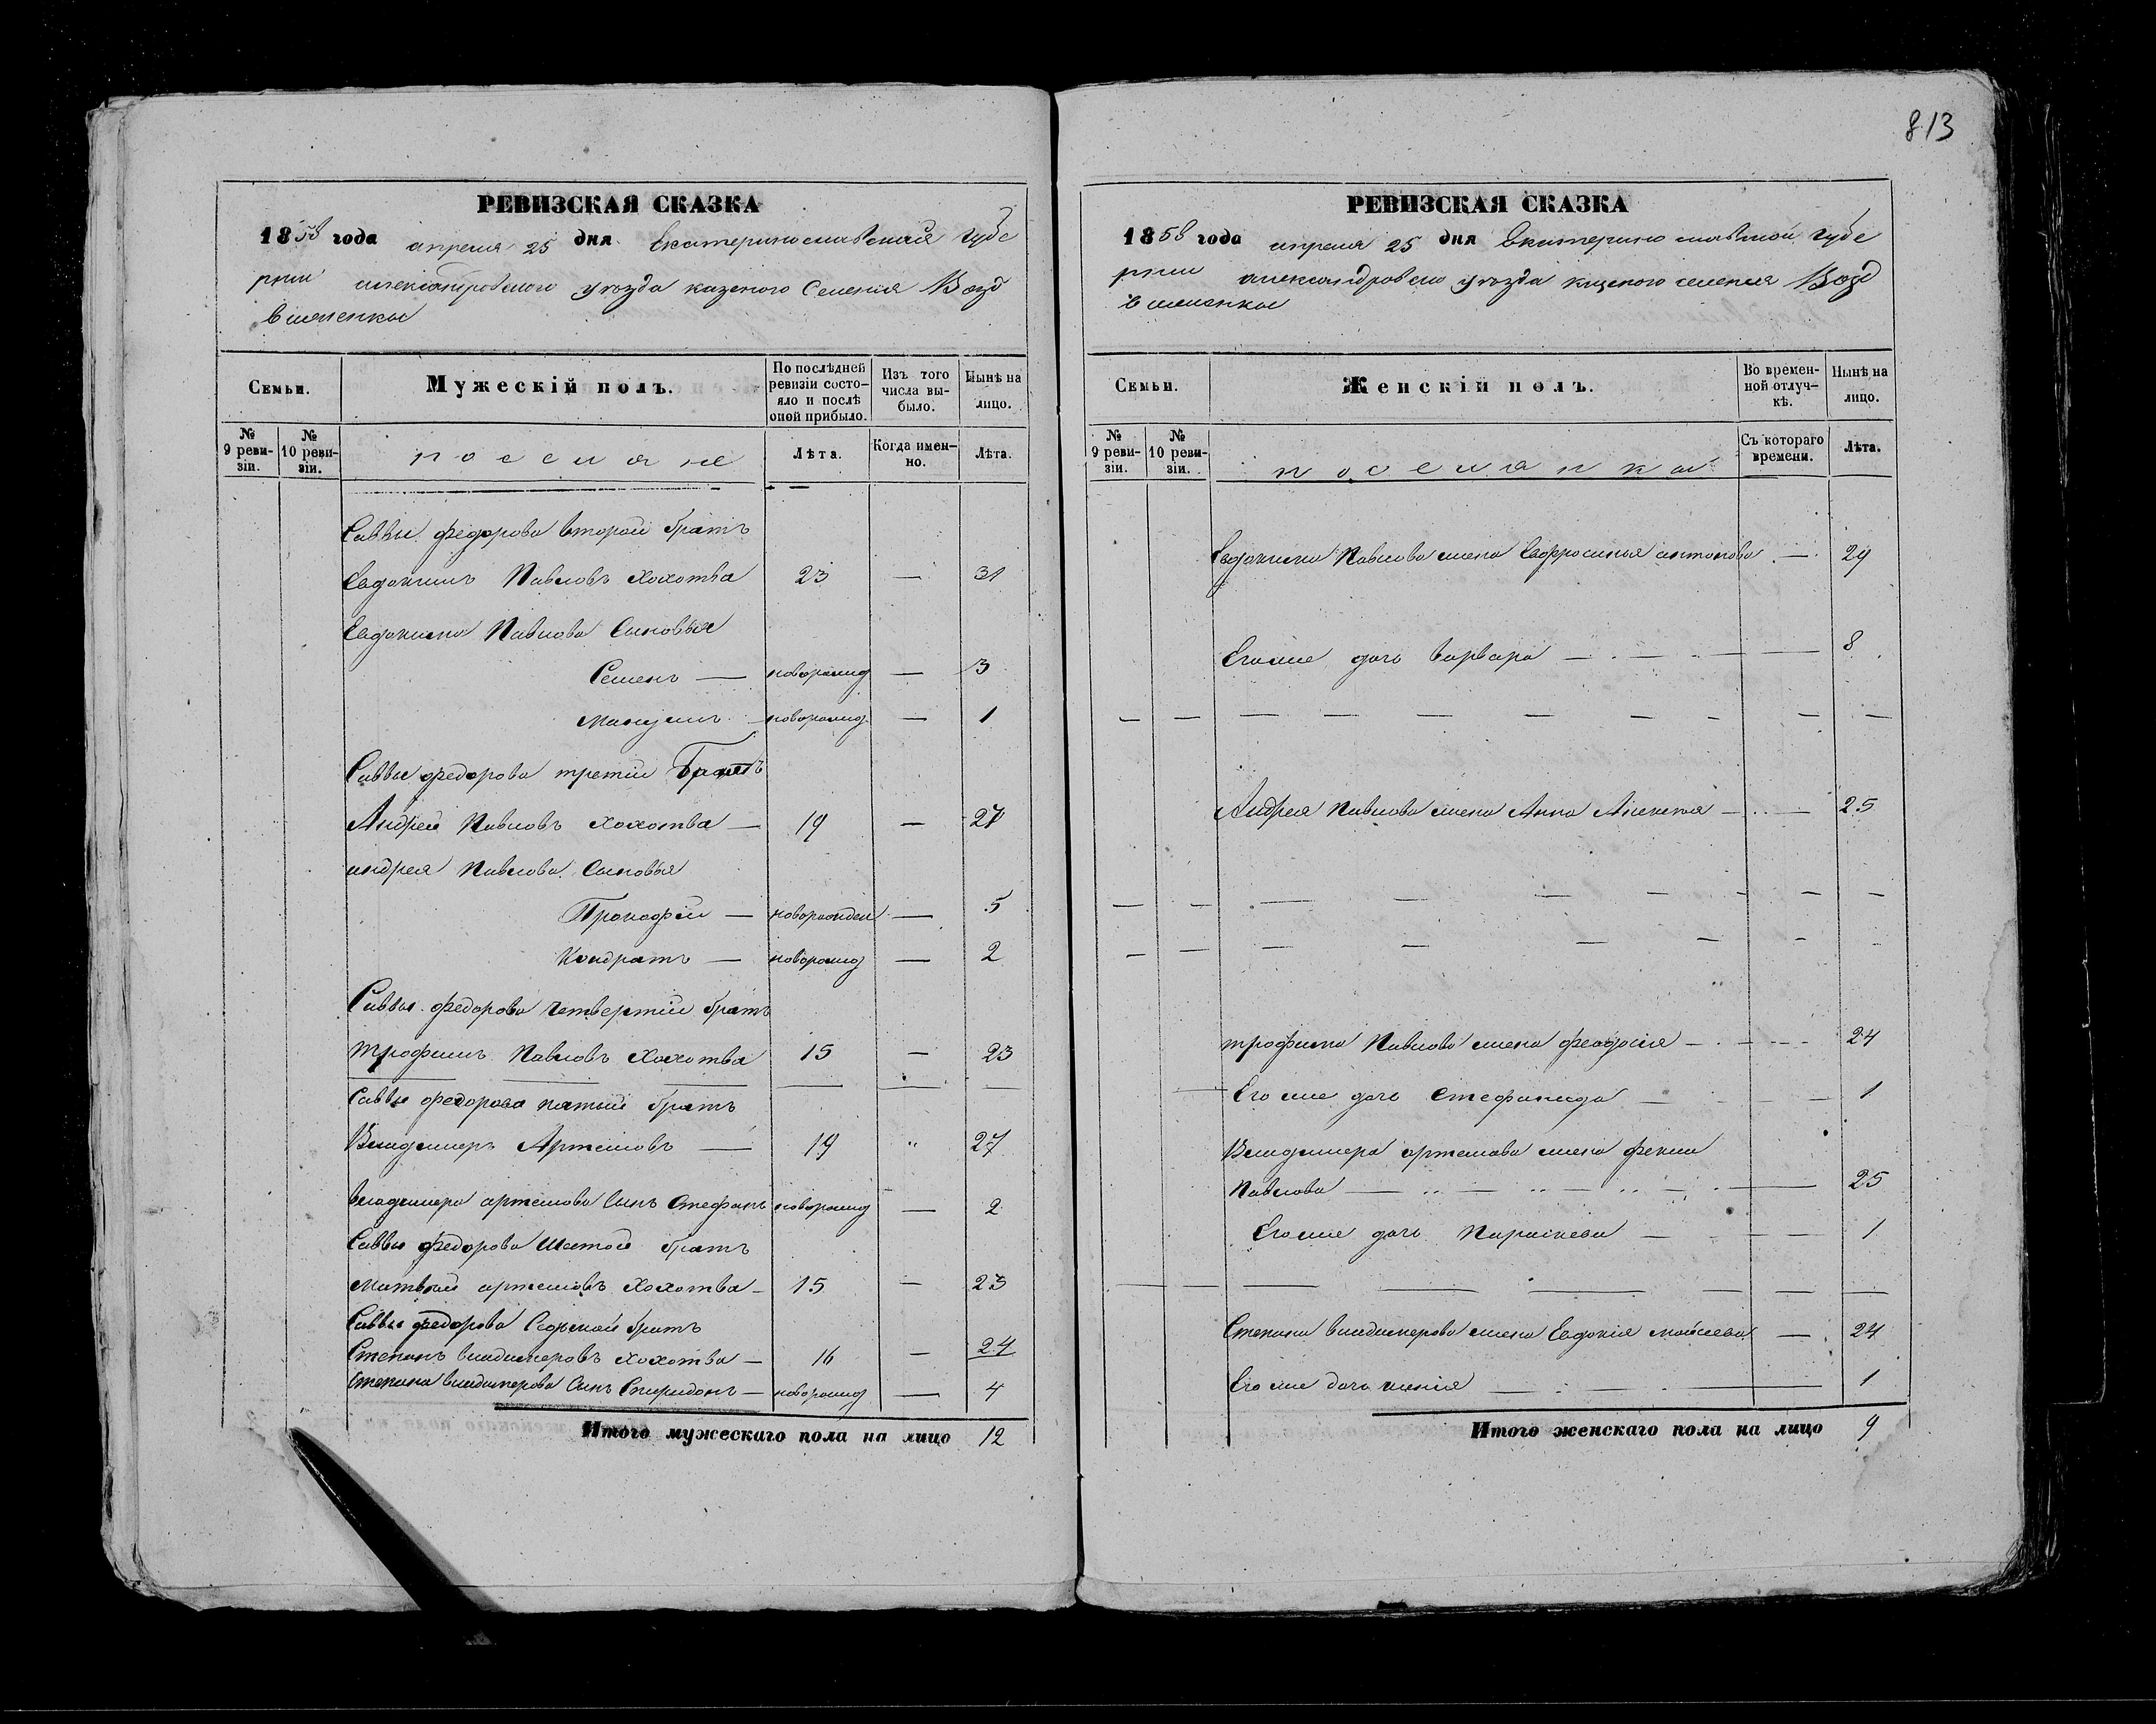 813
РЕВИЗСКАЯ СКАЗКА
1858 года апреля 25 дня Екатеринославская губе
рнии александровского уезда казеного Селения Возд
виженки
Семьи.
Мужескій полъ.
По послѣдней ревизіи состо-
яло и послѣ оной прибыло.
Изъ того числа вы-
было.
Нынѣ на лицо.
№ 9 реви-
зіи.
№ 10 реви-
зіи.
поселяне
Лѣта.
Когда имен-
но.
Лѣта.
Саввы федорова второй братъ
Евдокимъ Павловъ Хохотва 23 — 31
Евдокима Павлова Сыновья
Семенъ — новорожд — 3
Мануилъ — новорожд — 1
Саввы федорова третии Братъ
Андрей Павловъ Хохотва — 19 — 27
андрея Павлова Сыновья
Прокофии — новорожден — 5
Кондратъ — новорожд — 2
Саввы федорова четвертии братъ
Трофимъ Павловъ Хохотва 15 — 23
Саввы федорова пятый братъ
Владимеръ Артемовъ — 19 " 27
владимера артемова Сынъ Стефанъ новорожд — 2
Саввы федорова Шестой братъ
Матвѣй артемовъ Хохотва — 15 — 23
Саввы федорова Седьмой братъ
Степанъ владимеровъ Хохотва — 16 — 24
Степана владимерова Сынъ Спиридонъ — новорожд — 4
Итого мужескаго пола на лицо 12
РЕВИЗСКАЯ СКАЗКА
1858 года апреля 25 дня Екатеринославской губе
рнии александровско уезда казеного селения Возд
виженки
Семьи.
Женскій полъ.
Во времен-
ной отлуч-
кѣ.
Нынѣ на лицо.
№ 9 реви-
зіи.
№ 10 реви-
зіи.
поселянки
Съ котораго времени.
Лѣта.
Евдокима Павлова жена Евфросинья антонова — 29
Егоже дочь варвара — 8
Андрея Павлова жена Анна — 25
трофима Павлова жена феодосия — 24
Его же дочь Стефанида — 1
Владимера артемова жена фекла
Павлова — 25
Егоже дочь Параскева — 1
Степана владимерова жена Евдокия моисеева — 24
Его же дочь — 1
Итого женскаго пола на лицо 9